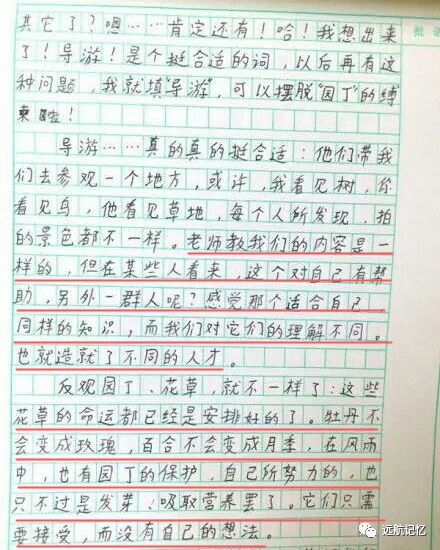 批语
其它了？嗯……肯定还有！哈！我想出来
了！导游！是个挺合适的词，以后再有这
种问题，我就填“导游”，可以摆脱“园丁”的缚
束啦！
导游……真的真的挺合适：他们带我
们去参观一个地方，或许，我看见树，你
看见鸟，他看见草地，每个人所发现，拍
的景色都不一样。老师教我们的内容是一
样的，但在某些人看来，这个对自己有帮
助，另外一群人呢？感觉那个适合自己，
同样的知识，而我们对它们的理解不同。
也就造就了不同的人才。
反观园丁、花草，就不一样了：这些
花草的命运都已经是安排好的了。牡丹不
会变成玫瑰，百合不会变成月季，在风雨
中，也有园丁的保护，自己所努力的，也
只不过是发芽、吸取营养罢了。它们只需
要接受，而没有自己的想法。
远航记忆